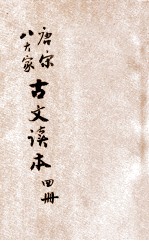 唐宋
八大家
古文读本 四册